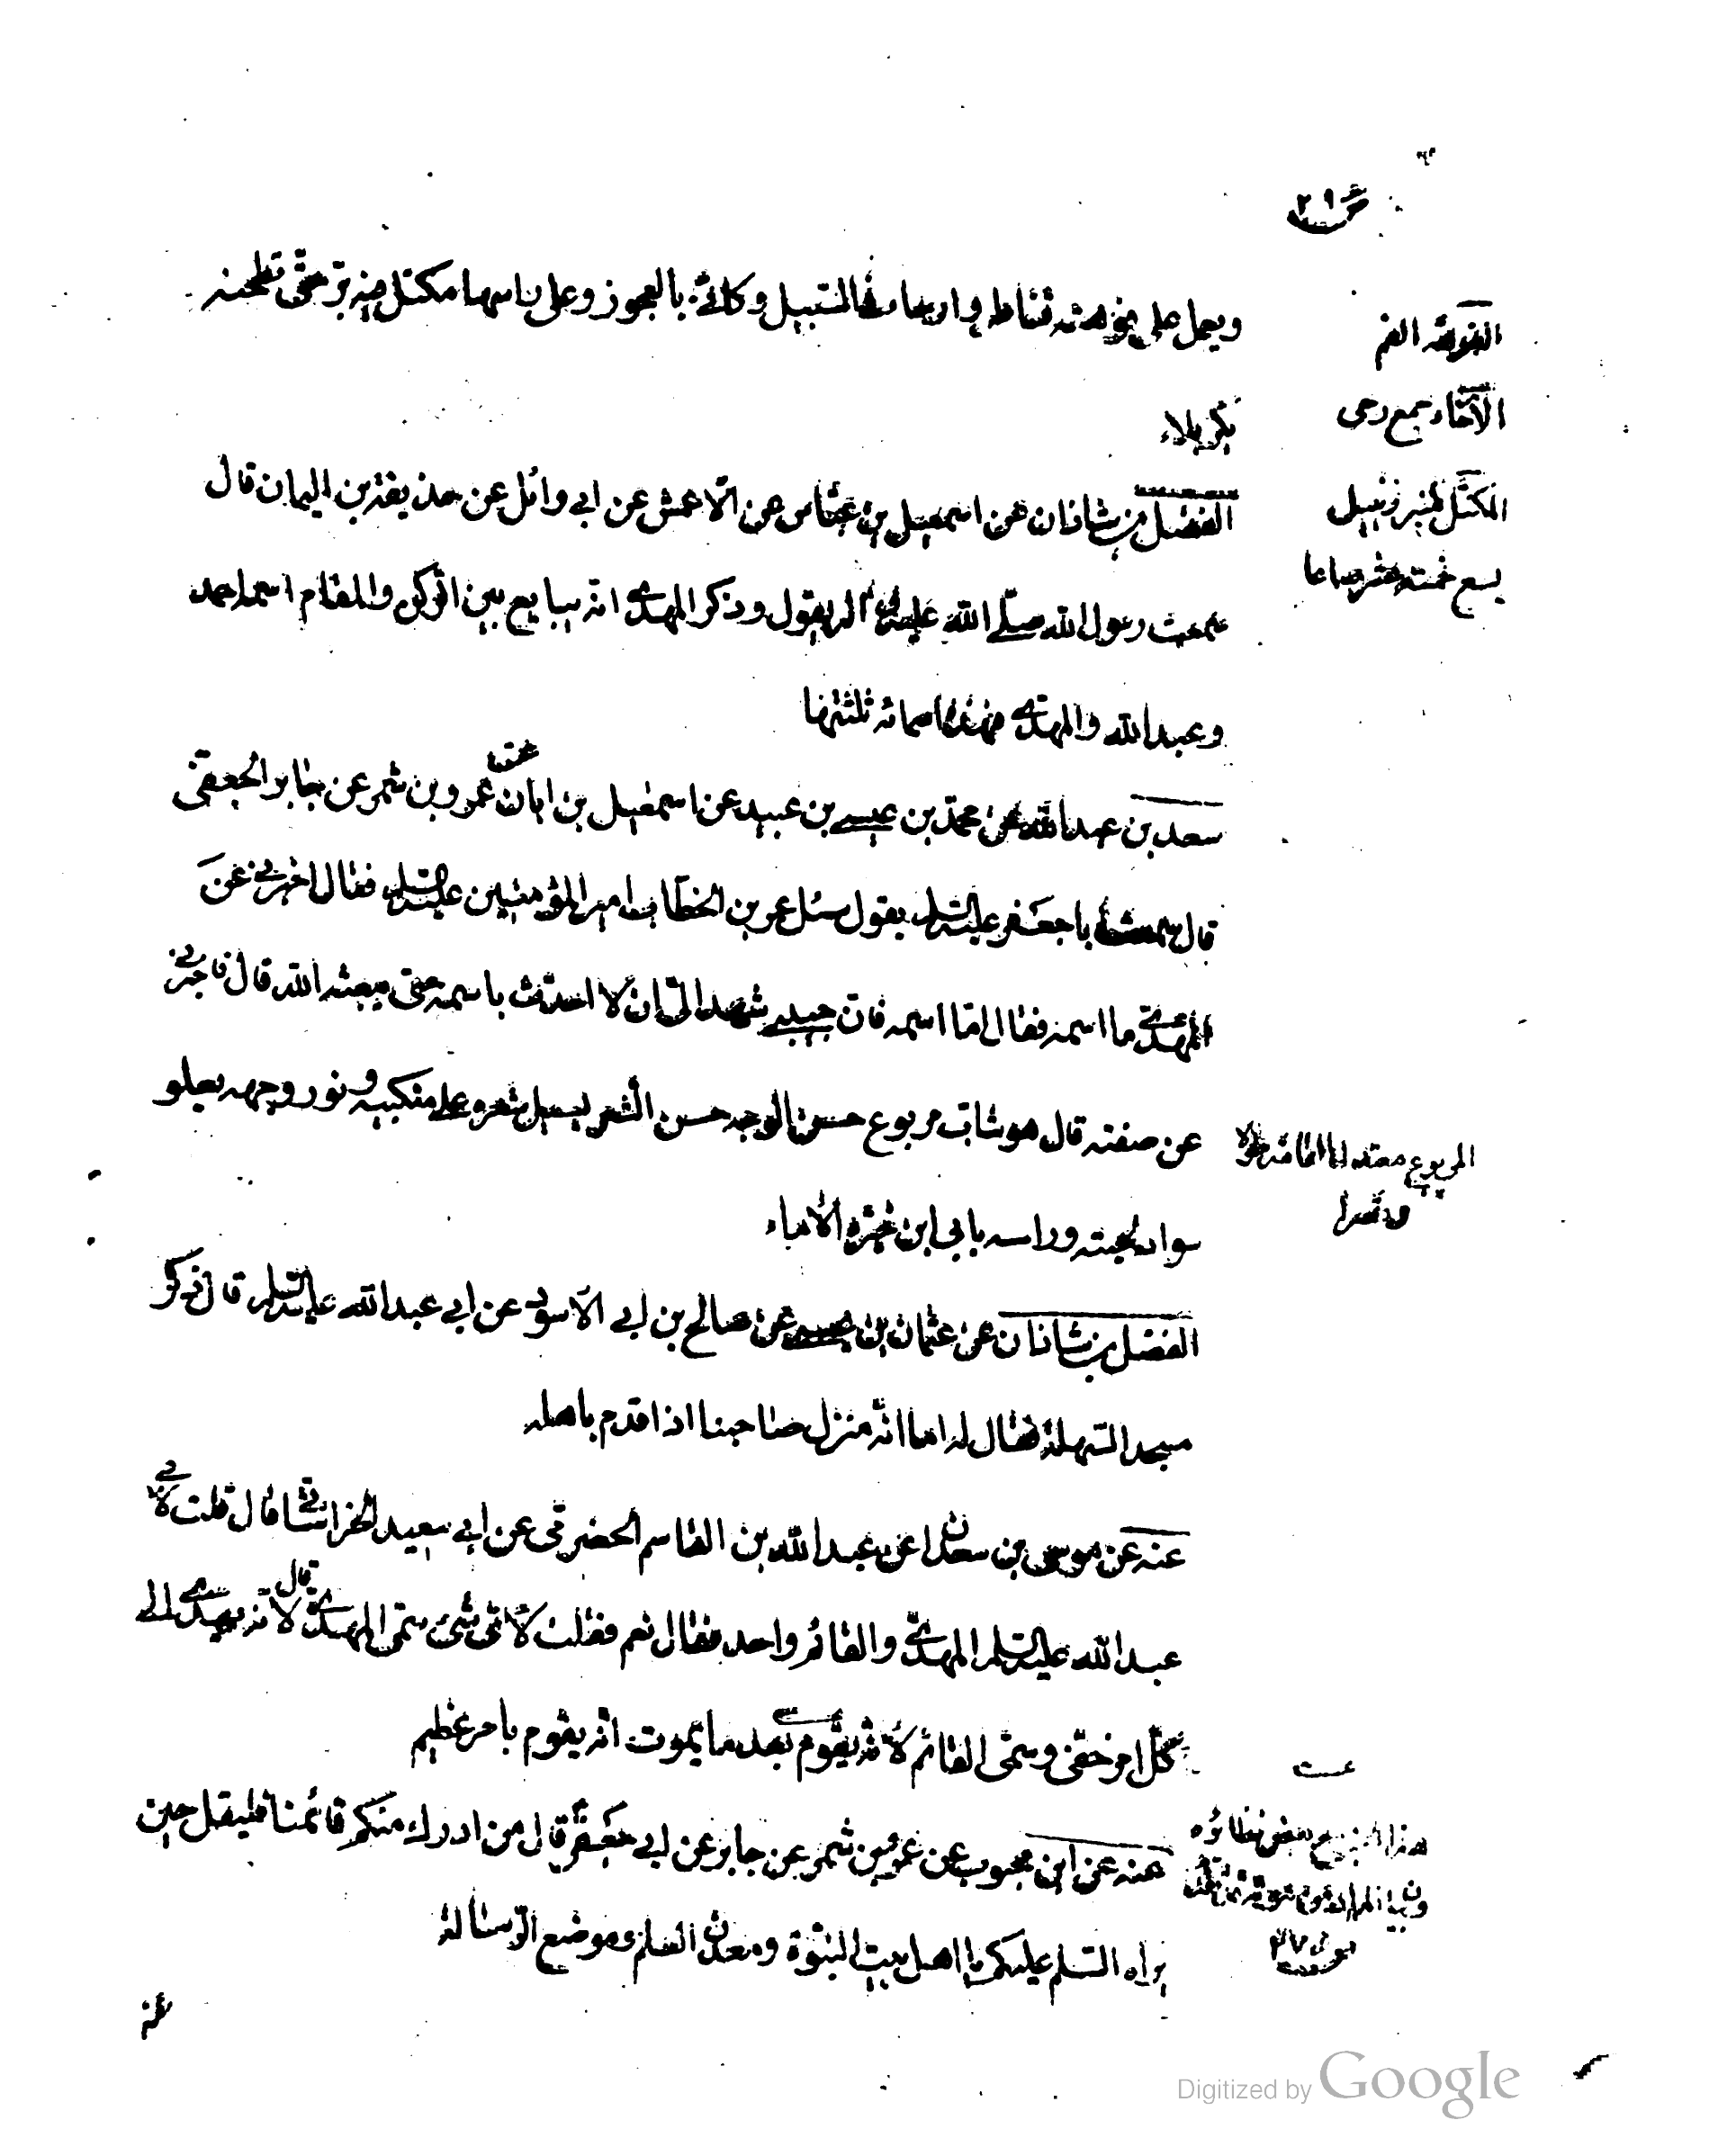 ويعمل على فوهته قناطر وارحاء في السبيل وكانّي بالعجوز وعلى راسها مكتل فيه برّ حتّى تطحنه
بكربلاء
الفضل بن شاذان عن اسمعيل بن عيّاش عن الاعمش عن ابي وائل عن حذيفة بن اليمان قال
سمعت رسول الله صلّى الله عليه واله يقول وذكر المهدي انه يبايع بين الركن والمقام اسمه احمد
وعبد الله والمهدي فهذه اسمائه ثلثتها
سعد بن عبد الله عن محمّد بن عيسى بن عبيد عن اسمعيل بن ابان عن عمرو بن شمر عن جابر الجعفي
قال سمعت ابا جعفر عليه السلام يقول سئل عمر بن الخطاب امير المؤمنين عليه السلام فقال اخبرني عن
المهدي ما اسمه فقال امّا اسمه فان حبيبي شهد الىّ ان لا احدّث باسمه حتى يبعثه الله قال فاخبرني
عن صفته قال هو شابّ مربوع حسن الوجه حسن الشعر يسيل شعره على منكبيه ونور وجهه يعلو
سواد لحيته وراسه بابي ابن خيرة الاماء
الفضل بن شاذان عن عثمان بن عيسى عن صالح بن ابي الاسود عن ابي عبد الله عليه السلام قال ذكر
مسجد السهلة فقال له اما انّه منزل صاحبنا اذا قدم باهله
عنه عن موسى بن سعدان عن عبد الله بن القاسم الحضرمي عن ابي سعيد الخراساني قال قلت لابي
عبد الله عليه السلام المهدي والقائم واحد فقال نعم فقلت لاىّ شئ سمّى المهدي قال لانه يهدي الى
كلّ امر خفي وسمّى القائم لانّه يقوم بعد ما يموت انّه يقوم بامر عظيم
عنه عن ابن محبوب عن عمرو بن شمر عن جابر عن ابي جعفر قال من ادرك منكم قائمنا فليقل حين
يراه السلم عليكم يا اهل بيت النبوّة ومعدن العلم وموضع الرسالة
الفوهة الفم
الارحاء جمع رحى
المكتل كمنبر زنبيل
يسع خمسة عشر صاعا
المربوع معتدل القامة
هذا مع بعض نظائره
Digitized by Google